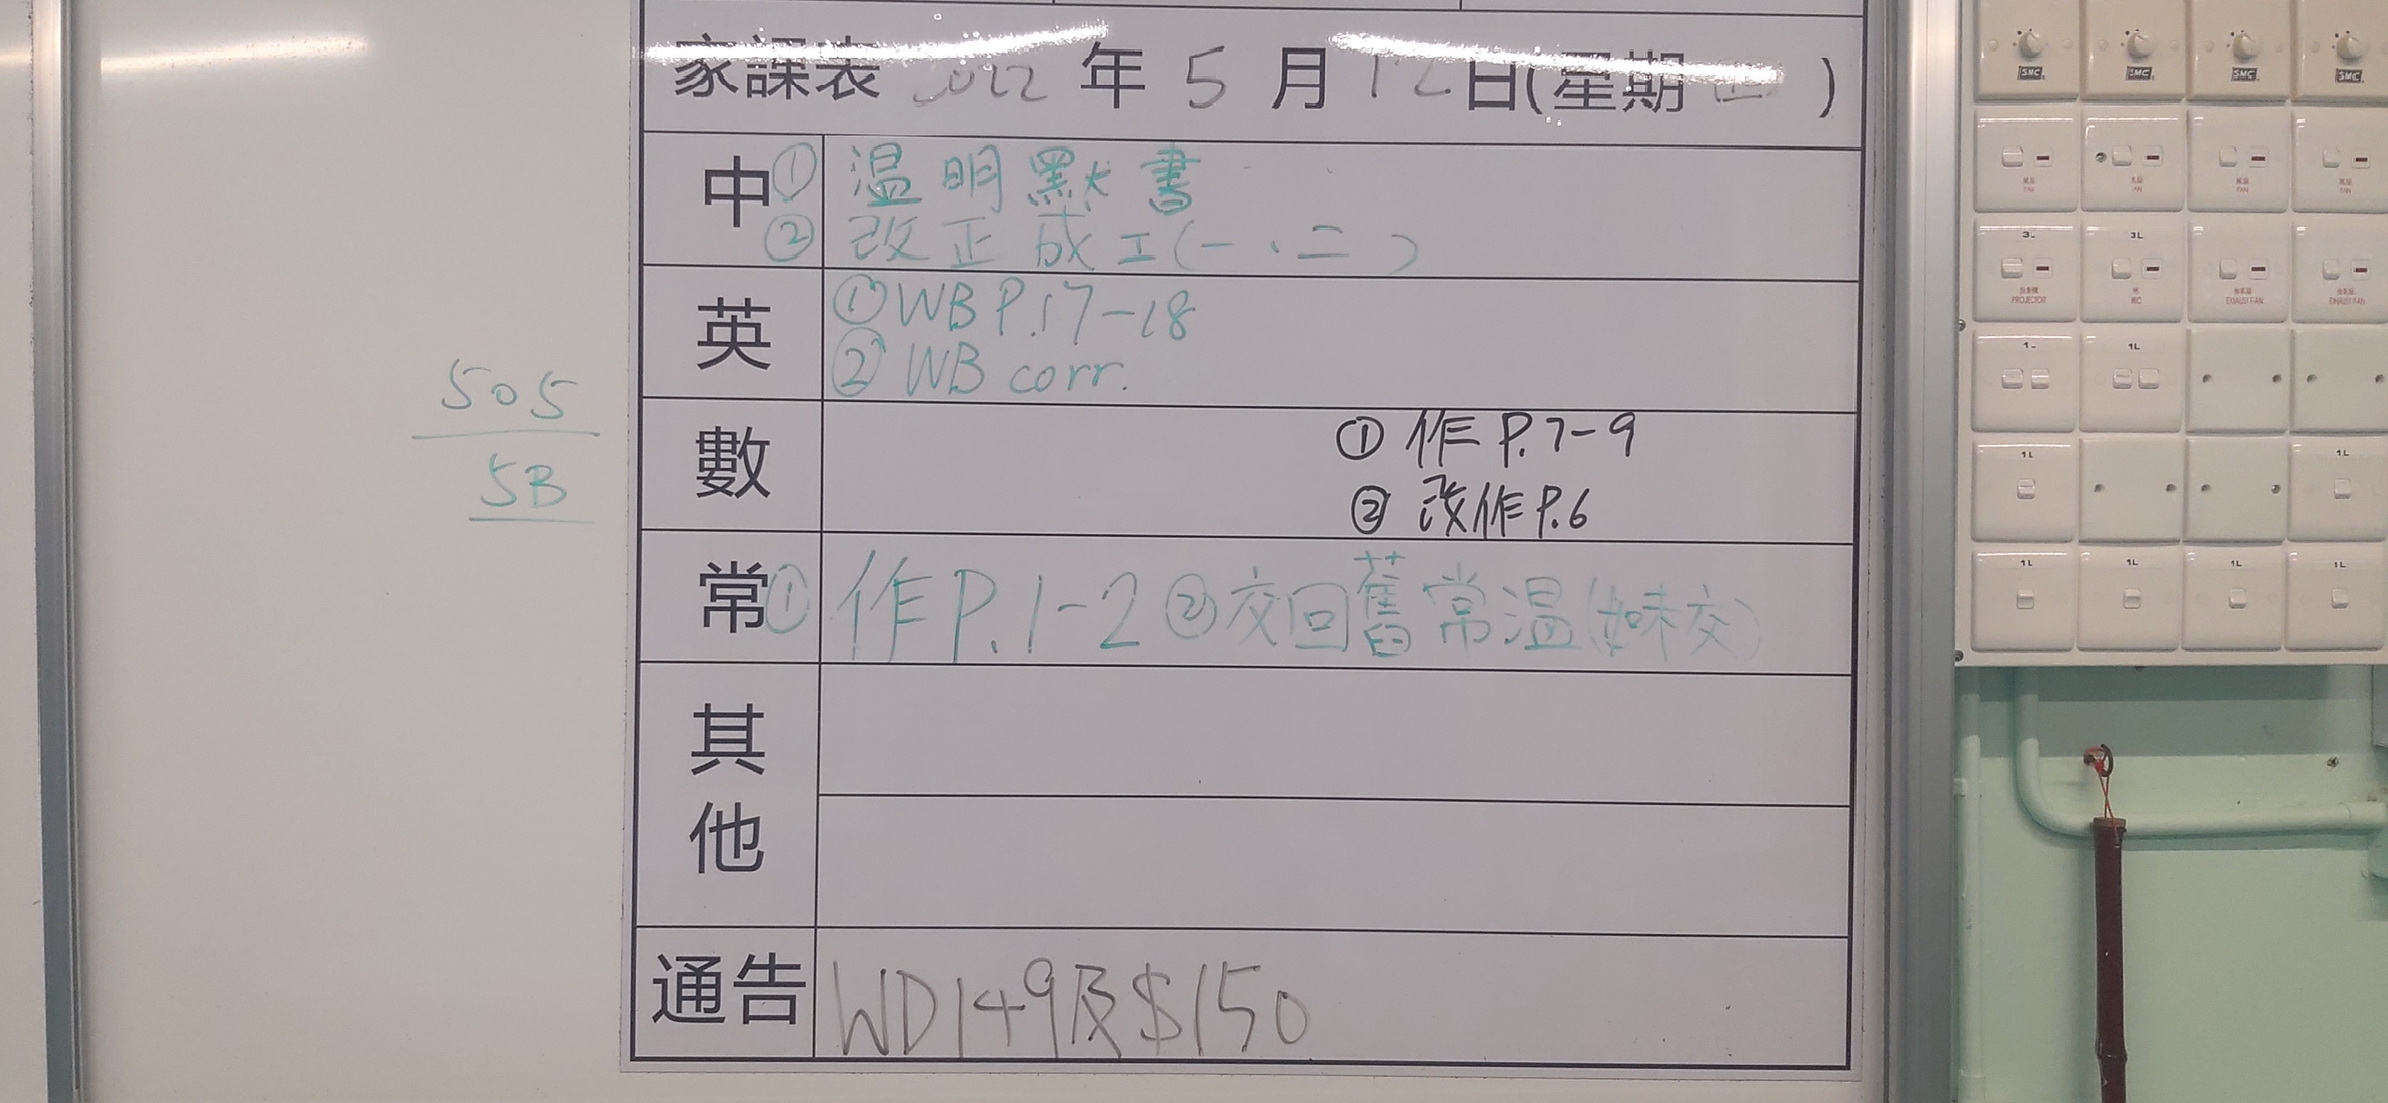 家課表 2022 年 5 月 12 日(星期四)
中 ① 温明默書
② 改正成工(一、二)
英 ① WB P.17-18
② WB corr.
505
5B
數 ① 作 P.7-9
② 改作 P.6
常 ① 作 P.1-2 ② 交回舊常温(妹交)
其他
通告 WD149及$150
SMC SMC SMC SMC
風扇 FAN 風扇 FAN 風扇 FAN 風扇 FAN
3L 3L
PROJECTOR MIC EXHAUST FAN EXHAUST FAN
1L 1L
1L 1L
1L 1L 1L 1L